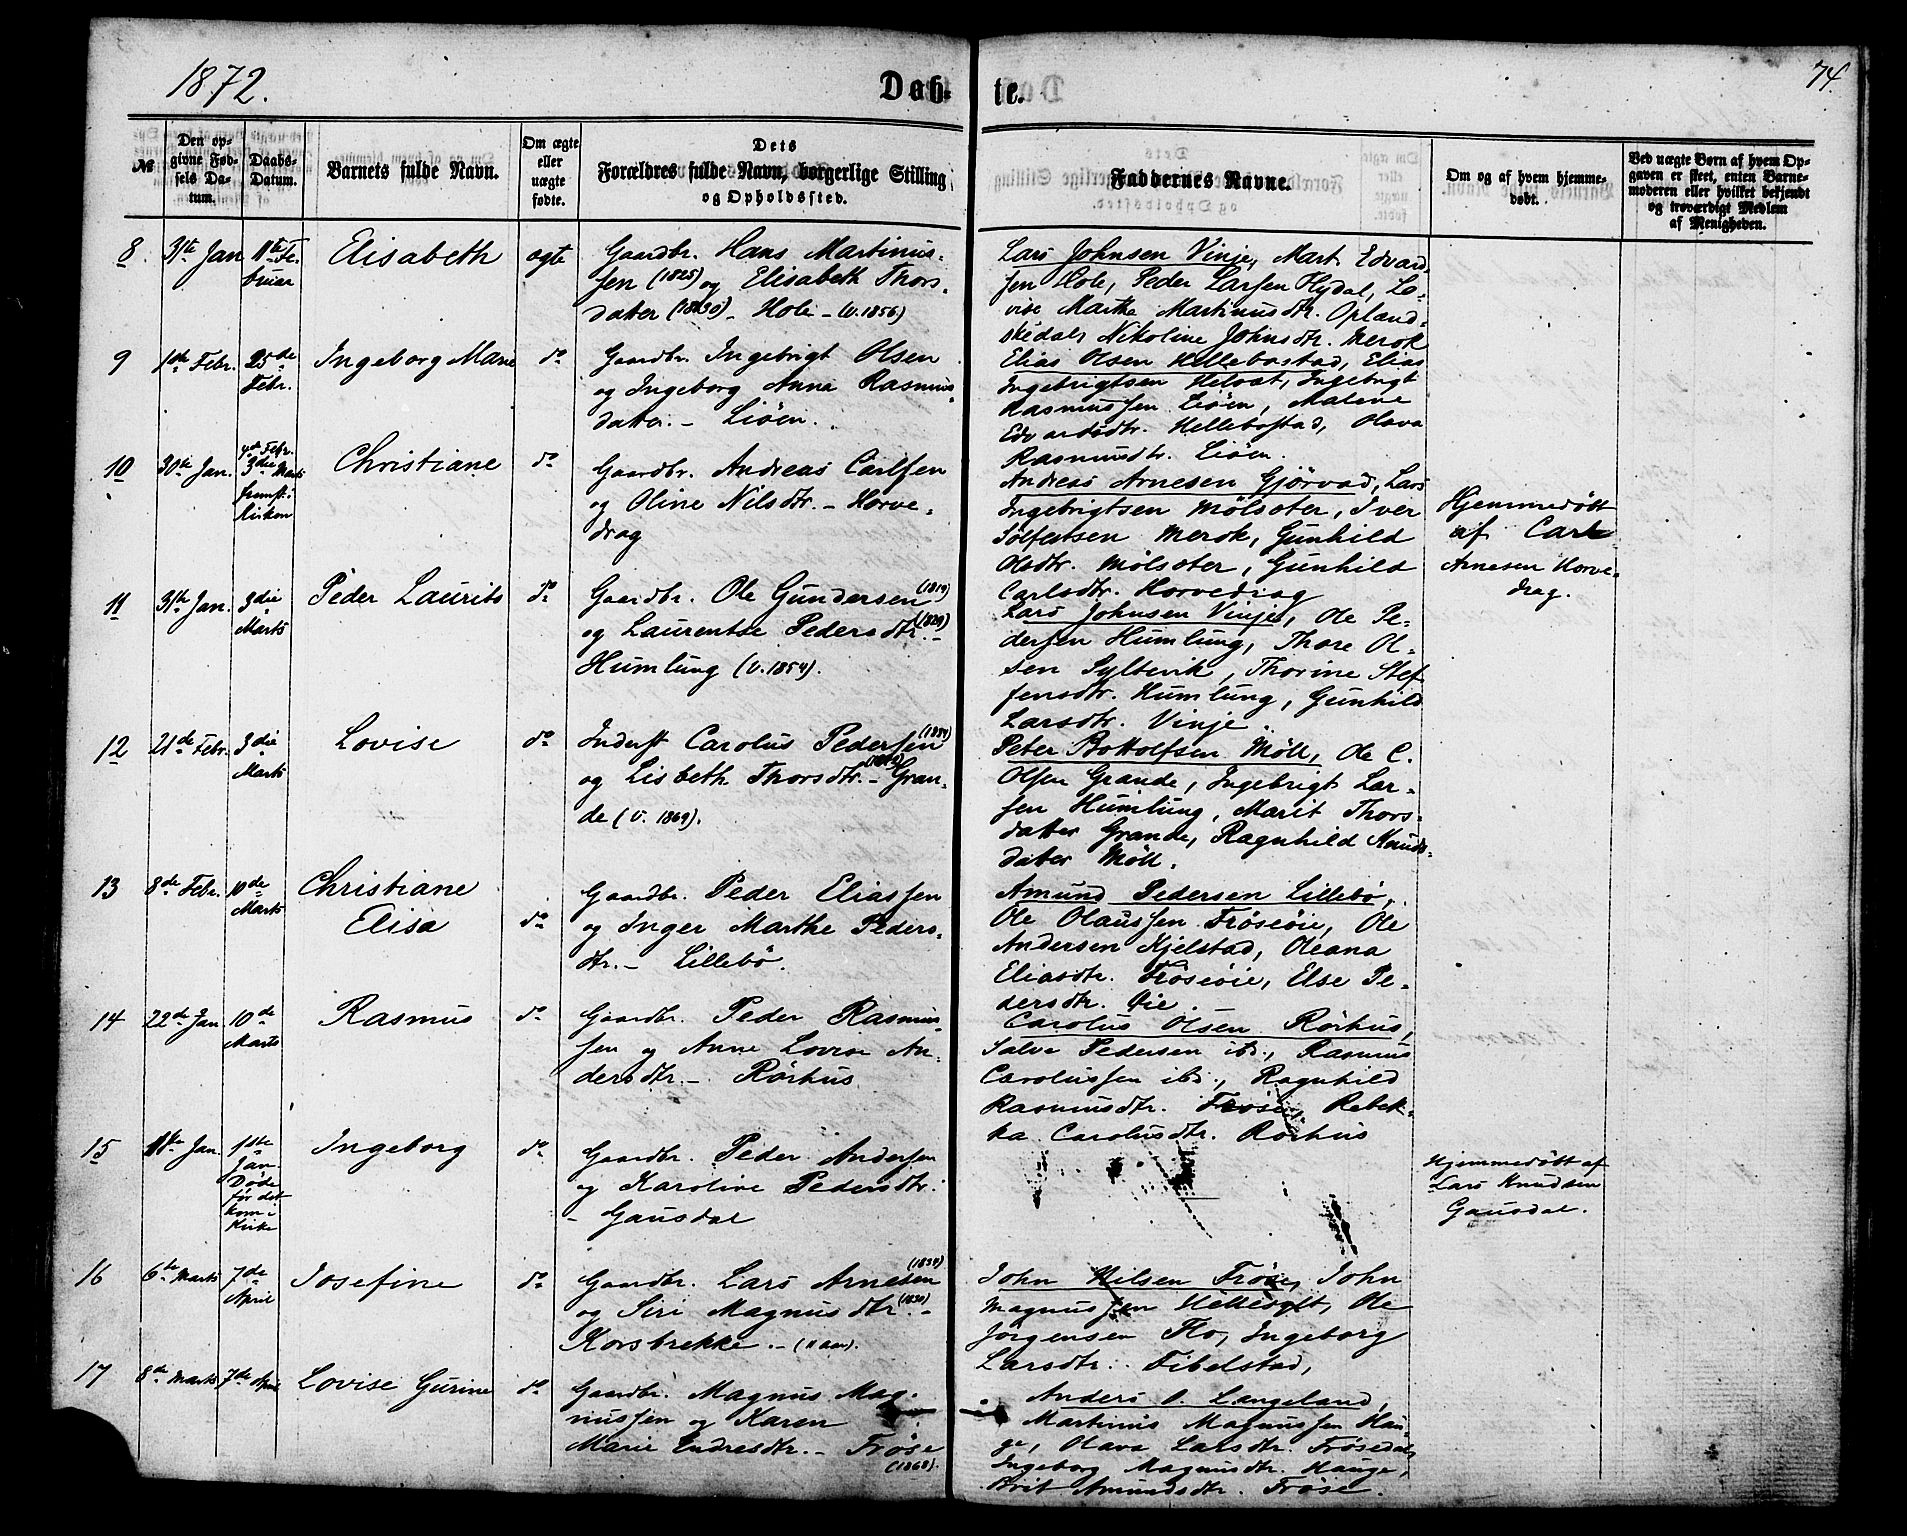 1872.
Døb-
te.
74.
№
Den op-
givne Fød-
sels Da-
tum.
Daabs-
Datum.
Barnets fulde Navn.
Om ægte
eller
uægte
fødte.
Dets
Forældres fulde Navn, borgerlige Stilling
og Opholdssted.
Faddernes Navne.
Om og af hvem hjemme-
døbt.
Ved uægte Børn af hvem Op-
gaven er skeet, enten Barne-
moderen eller hvilket bekjendt
og troværdigt Medlem
af Menigheden.
8.
31te Jan
11te Fe-
bruar
Elisabeth
ægte
Gaardbr. Hans Martinus-
sen (1825) og Elisabeth Thors-
datter (1830) - Hole - (v. 1856)
Lars Johnsen Vinje, Mart. Edvard-
sen Hole, Peder Larsen Flydal, Lo-
vise Marthe Martinusdtr. Opland-
skedals Nikoline Johnsdtr. Merok
9
1ste Febr.
25de
Febr.
Ingeborg Marie
do
Gaardbr. Ingebrigt Olsen
og Ingeborg Anna Rasmus-
datter. - Liøen.
Elias Olsen Hellebostad, Elias
Ingebrigtsen Helvat, Ingebrigt
Rasmussen Liøen, Malene
Edvardsdtr. Hellebostad, Olava
Rasmusdtr. Liøen.
10
30te Jan.
4de Febr.
3die Marts
fremst. i
Kirken
Christiane
do
Gaardbr. Andreas Carlsen
og Oline Nilsdtr. - Horve-
drag
Andreas Arnesen Gjørvad, Lars
Ingebrigtsen Mølsæter, Iver
Sølfestsen Merok, Gunhild
Olsdtr. Mølsæter, Gunhild
Carlsdtr. Horvedrag
Hjemmedøbt
af Carl
Arnesen Horve-
drag.
11
31te Jan.
3die
Marts
Peder Laurits
do
Gaardbr. Ole Gundersen (1819)
og Laurentse Pedersdtr. (1829) -
Humlung (v. 1854).
Lars Johnsen Vinje, Ole Pe-
dersen Humlung, Thore Ol-
sen Syltevik, Thorine Stef-
fensdtr. Humlung, Gunhild
Larsdtr. Vinje.
12
21de Febr.
3die
Marts
Lovise
do
Inderst Carolus Pedersen
og Lisbeth Thorsdtr. - Gran-
de (v. 1869).
Peter Bottolfsen Möll, Ole C.
Olsen Grande, Ingebrigt Lar-
sen Humlung, Marit Thors-
datter Grande, Ragnhild Knuds-
datter Möll.
13
8de Febr.
10de
Marts
Christiane
Elisa
do
Gaardbr. Peder Eliassen
og Inger Marthe Peders-
dtr. - Lillebø.
Amund Pedersen Lillebø,
Ole Olaussen Frøseøie, Ole
Andersen Kjelstad, Oleana
Eliasdtr. Frøseøie, Else Pe-
dersdtr. Øie.
14
22de Jan.
10de
Marts
Rasmus
do
Gaardbr. Peder Rasmus-
sen og Anne Lovise An-
dersdtr. - Rørhus
Carolus Olsen Rørhus,
Salve Pedersen ibd., Rasmus
Carolussen ibd., Ragnhild
Rasmusdtr. Frøse, Rebek-
ka Carolusdtr. Rørhus
15
Jan.
Jan.
Døde
før det
kom i
Kirke
Ingeborg
do
Gaardbr. Peder Andersen
og Karoline Pedersdtr.
- Gausdal
Hjemmedøbt af
Lars Knudsen
Gausdal.
16
6te Marts
7de
April
Josefine
do
Gaardbr. Lars Arnesen
og Siri Magnusdtr. (1830) -
Korsbrekke. - (11 aar).
John Nilsen Frøse, John
Magnussen Hellesylt, Ole
Jørgensen Flo, Ingeborg
Larsdtr. Fibelstad,
17
8de Marts
7de April
Lovise Gurine
do
Gaardbr. Magnus Mag-
nussen og Karen
Marie Endresdtr. - Frøse
(1868).
Anders O. Langeland,
Martinus Magnussen Hau-
ge, Olava Larsdtr. Frøsedal,
Ingeborg Magnusdtr. Hauge,
Brit Amundsdtr. Frøse.